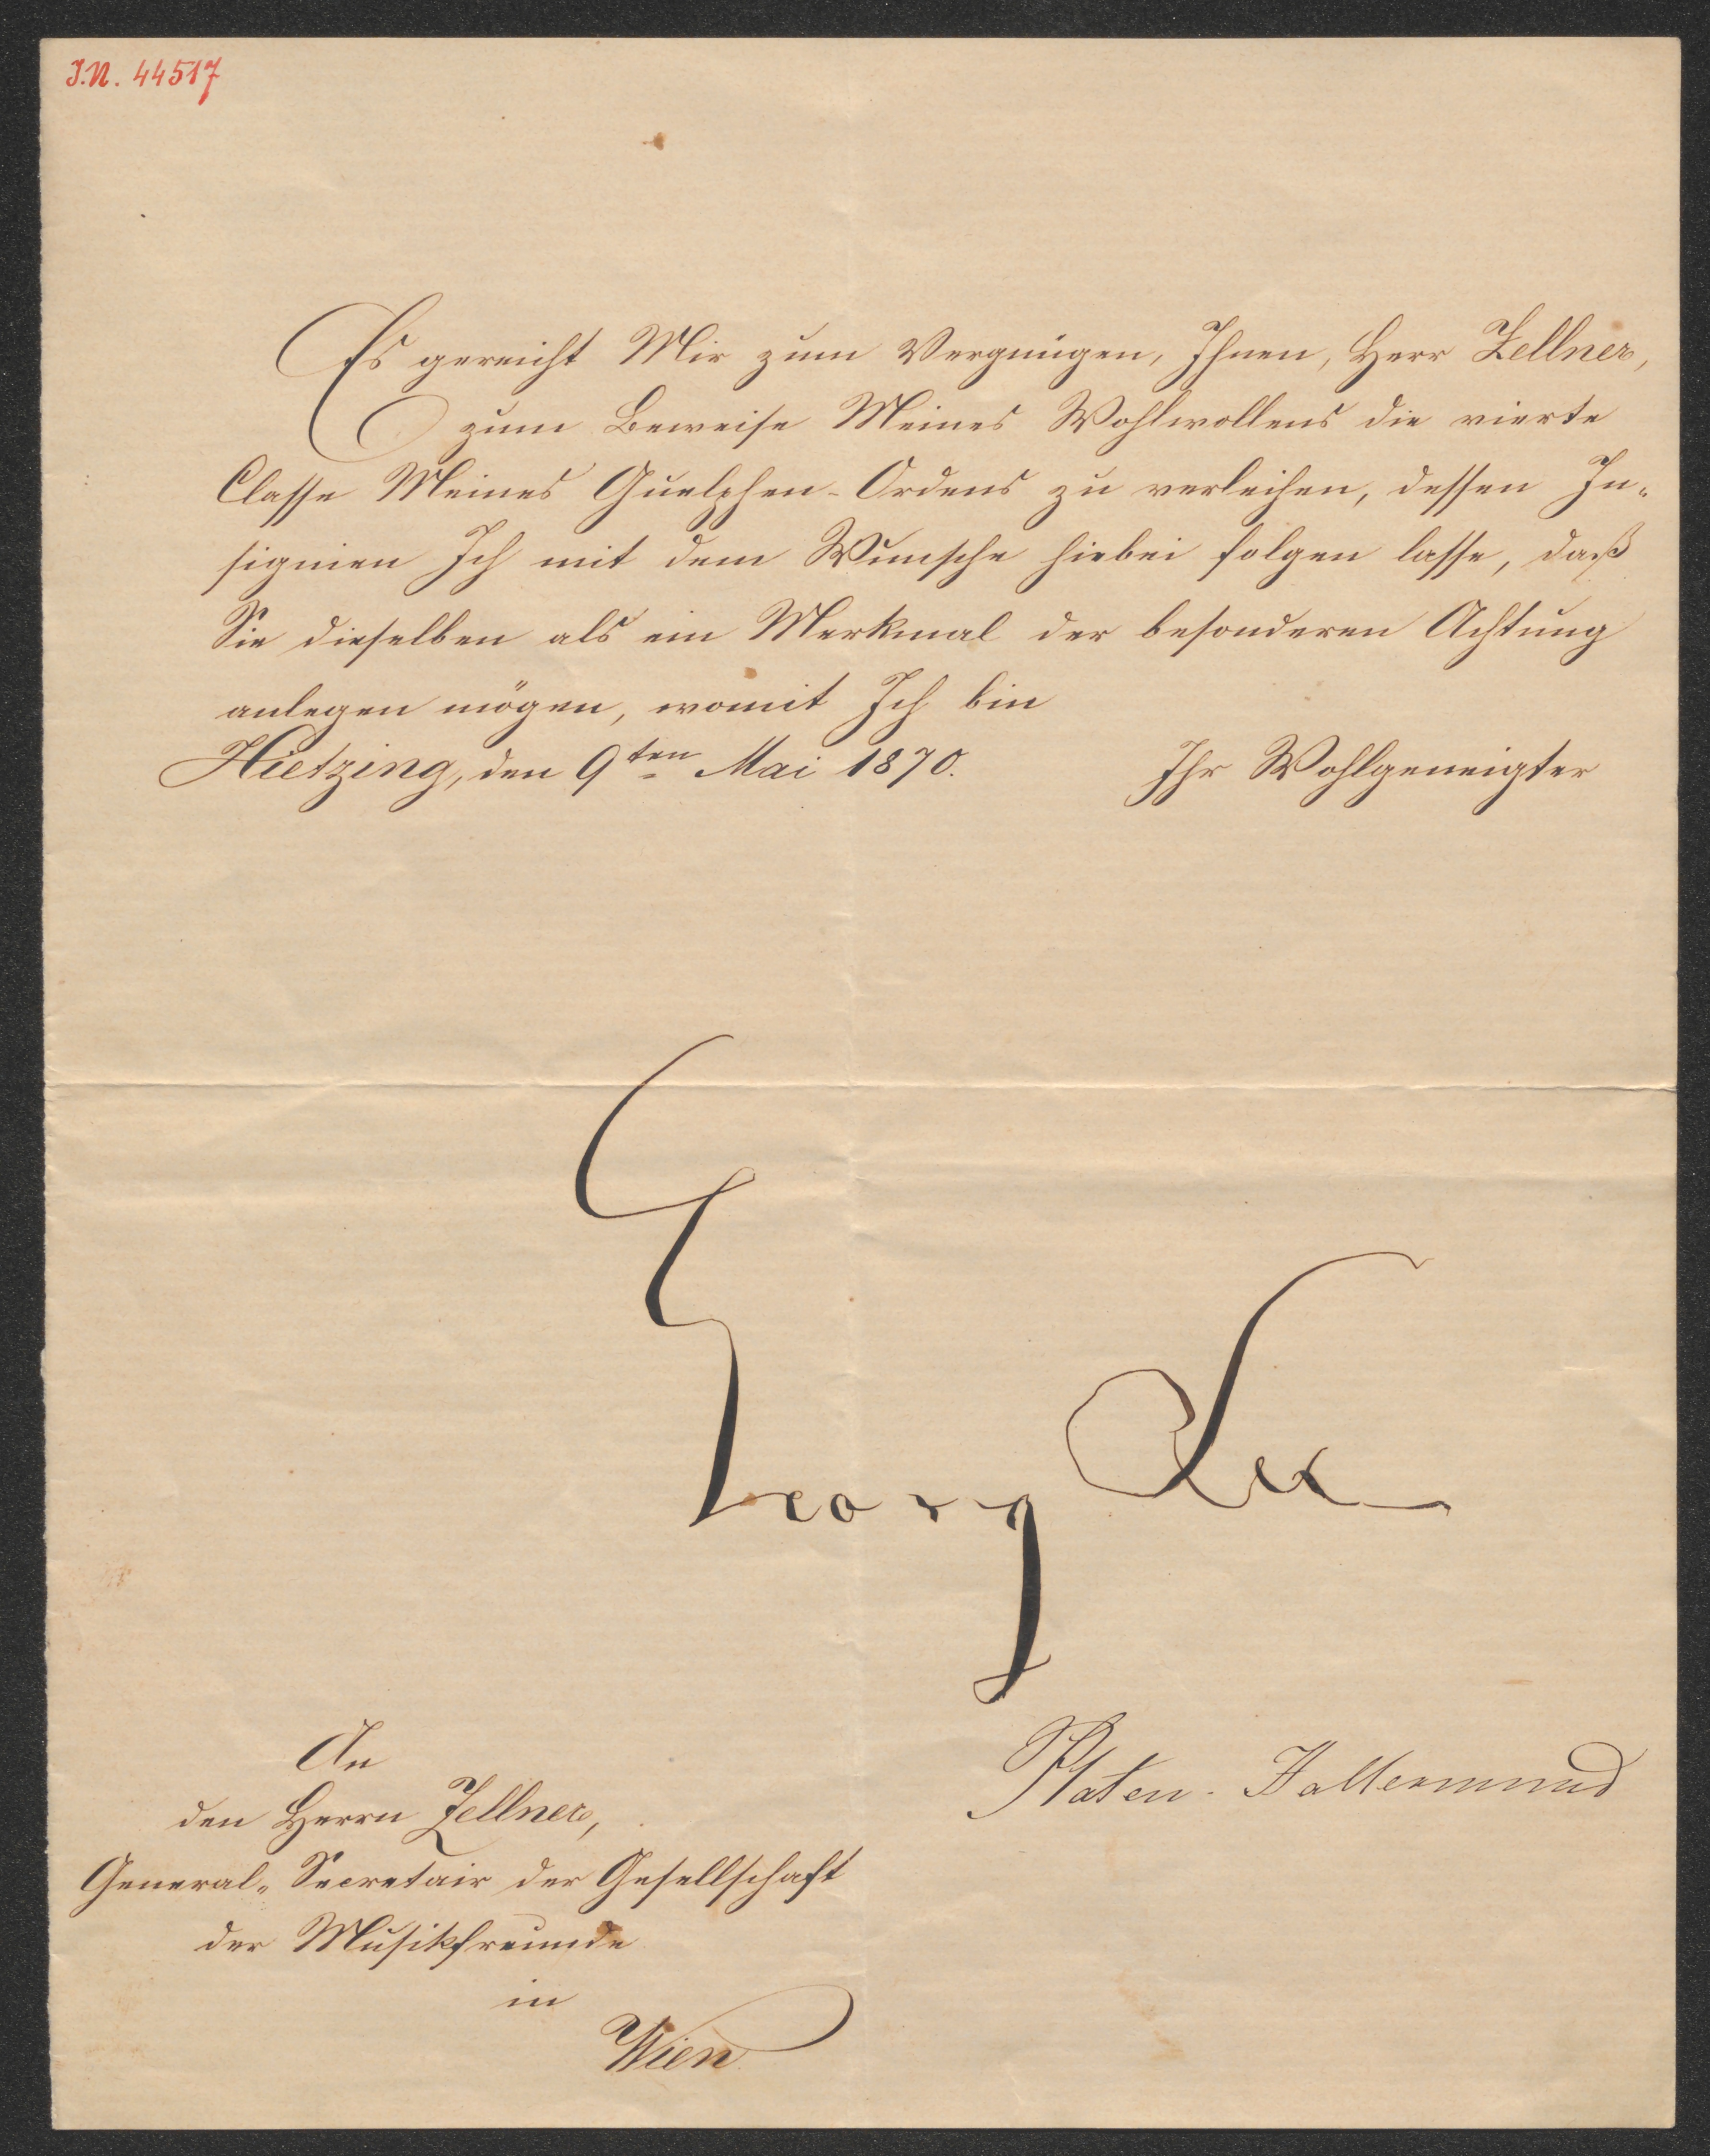 I.N. 44517
Es gereicht Mir zum Vergnügen, Ihnen, Herr Zellner,
zum Beweise Meines Wohlwollens die vierte
Classe Meines Guelphen-Ordens zu verleihen, dessen In-
signien Ich mit dem Wunsche hiebei folgen lasse, daß
Sie dieselben als ein Merkmal der besonderen Achtung
anlegen mögen, womit Ich bin
Hietzing, den 9ten Mai 1870. Ihr Wohlgeneigter
Georg Rex
Platen-Hallermund
An
den Herrn Zellner,
General-Secretair der Gesellschaft
der Musikfreunde
in
Wien